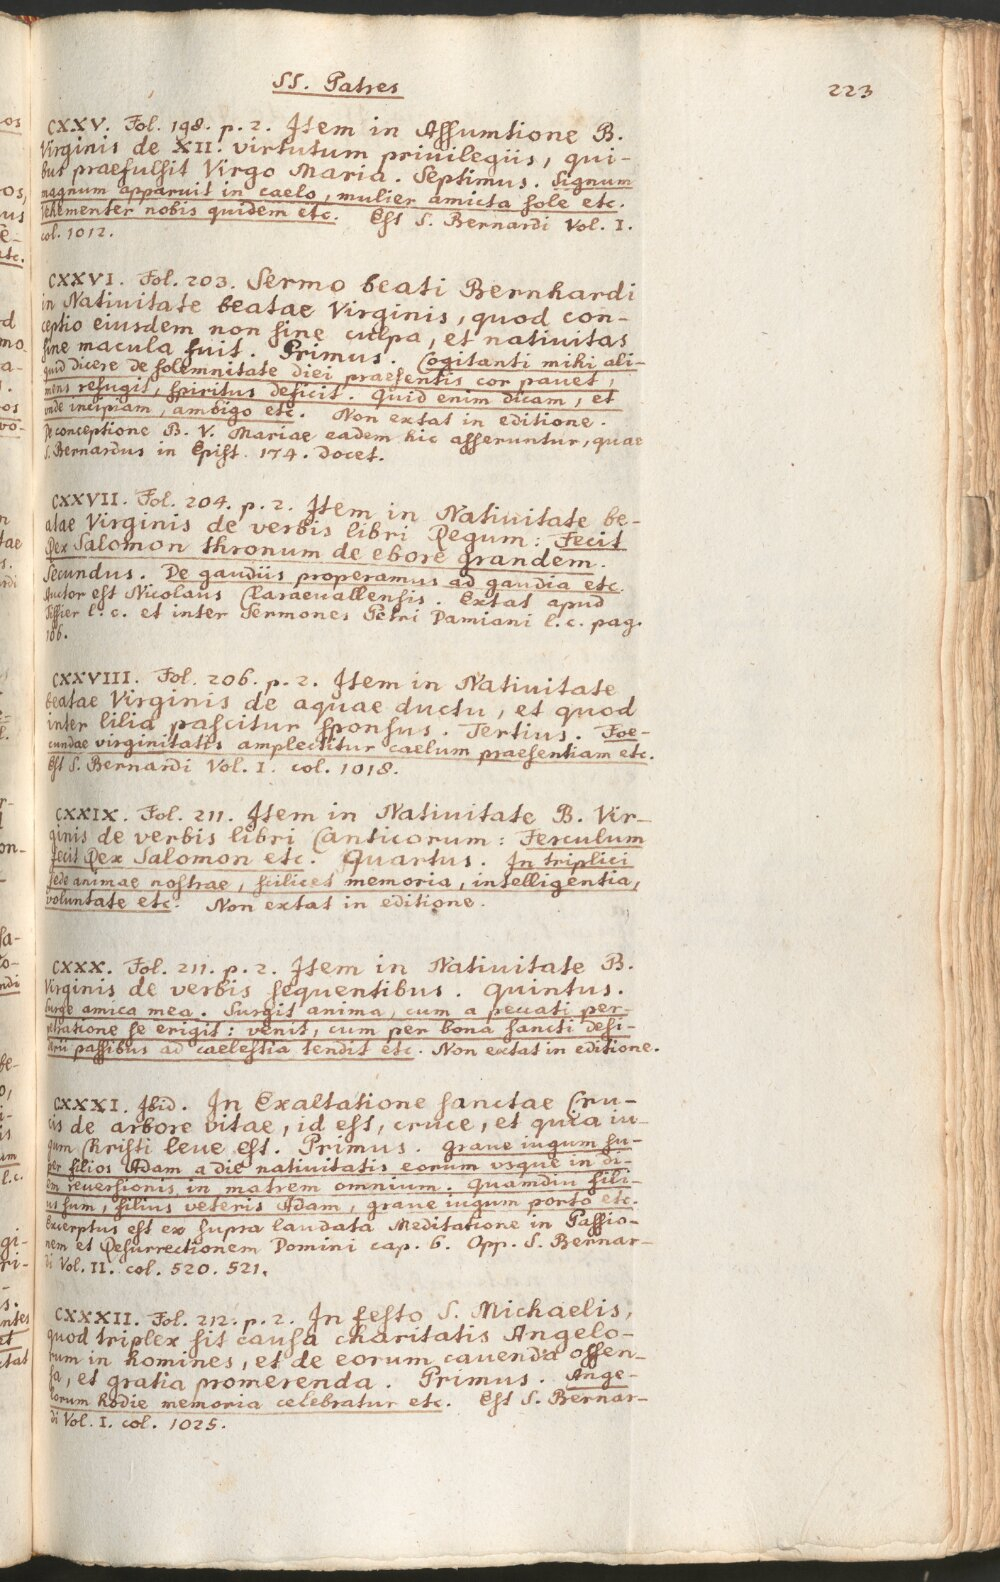 SS. Patres
223
CXXV. Fol. 198. p. 2. Item in Assumtione B.
Virginis de XII. virtutum priuilegiis, qui-
bus praefulsit Virgo Maria. Septimus. Signum
magnum apparuit in caelo, mulier amicta sole etc.
Vehementer nobis quidem etc. Est S. Bernardi Vol. I.
col. 1012.
CXXVI. Fol. 203. Sermo beati Bernhardi
in Natiuitate beatae Virginis, quod con-
ceptio eiusdem non sine culpa, et natiuitas
sine macula fuit. Primus. Cogitanti mihi ali-
quid dicere de solemnitate diei praesentis cor pauet,
mens refugit, spiritus deficit. Quid enim dicam, et
unde incipiam, ambigo etc. Non extat in editione.
De conceptione B. V. Mariae eadem hic asseruntur, quae
S. Bernardus in Epist. 174. docet.
CXXVII. Fol. 204. p. 2. Item in Natiuitate be-
atae Virginis de verbis libri Regum: Fecit
Rex Salomon thronum de ebore grandem.
Secundus. De gaudiis properamus ad gaudia etc.
Auctor est Nicolaus Claraeuallensis. Extat apud
Tissier l. c. et inter Sermones Petri Damiani l. c. pag.
106.
CXXVIII. Fol. 206. p. 2. Item in Natiuitate
beatae Virginis de aquae ductu, et quod
inter lilia pascitur sponsus. Tertius. Foe-
cundae virginitatis amplectitur caelum praesentiam etc.
Est S. Bernardi Vol. I. col. 1018.
CXXIX. Fol. 211. Item in Natiuitate B. Vir-
ginis de verbis libri Canticorum: Ferculum
fecit Rex Salomon etc. Quartus. In triplici
sede animae nostrae, scilicet memoria, intelligentia,
voluntate etc. Non extat in editione.
CXXX. Fol. 211. p. 2. Item in Natiuitate B.
Virginis de verbis sequentibus. Quintus.
Surge amica mea. Surgit anima, cum a peccati per-
petratione se erigit: venit, cum per bona sancti desi-
derii passibus ad caelestia tendit etc. Non extat in editione.
CXXXI. Ibid. In Exaltatione sanctae Cru-
cis de arbore vitae, id est, cruce, et quia iu-
gum Christi leue est. Primus. Graue iugum su-
per filios Adam a die natiuitatis eorum vsque in di-
em reuersionis in matrem omnium. Quamdiu fili-
us sum, filius veteris Adam, graue iugum porto etc.
Excerptus est ex supra laudata Meditatione in Passio-
nem et Resurrectionem Domini cap. 6. Opp. S. Bernar-
di Vol. II. col. 520. 521.
CXXXII. Fol. 212. p. 2. In festo S. Michaelis,
quod triplex sit causa charitatis Angelo-
rum in homines, et de eorum cauenda offen-
sa, et gratia promerenda. Primus. Ange-
lorum hodie memoria celebratur etc. Est S. Bernar-
di Vol. I. col. 1025.